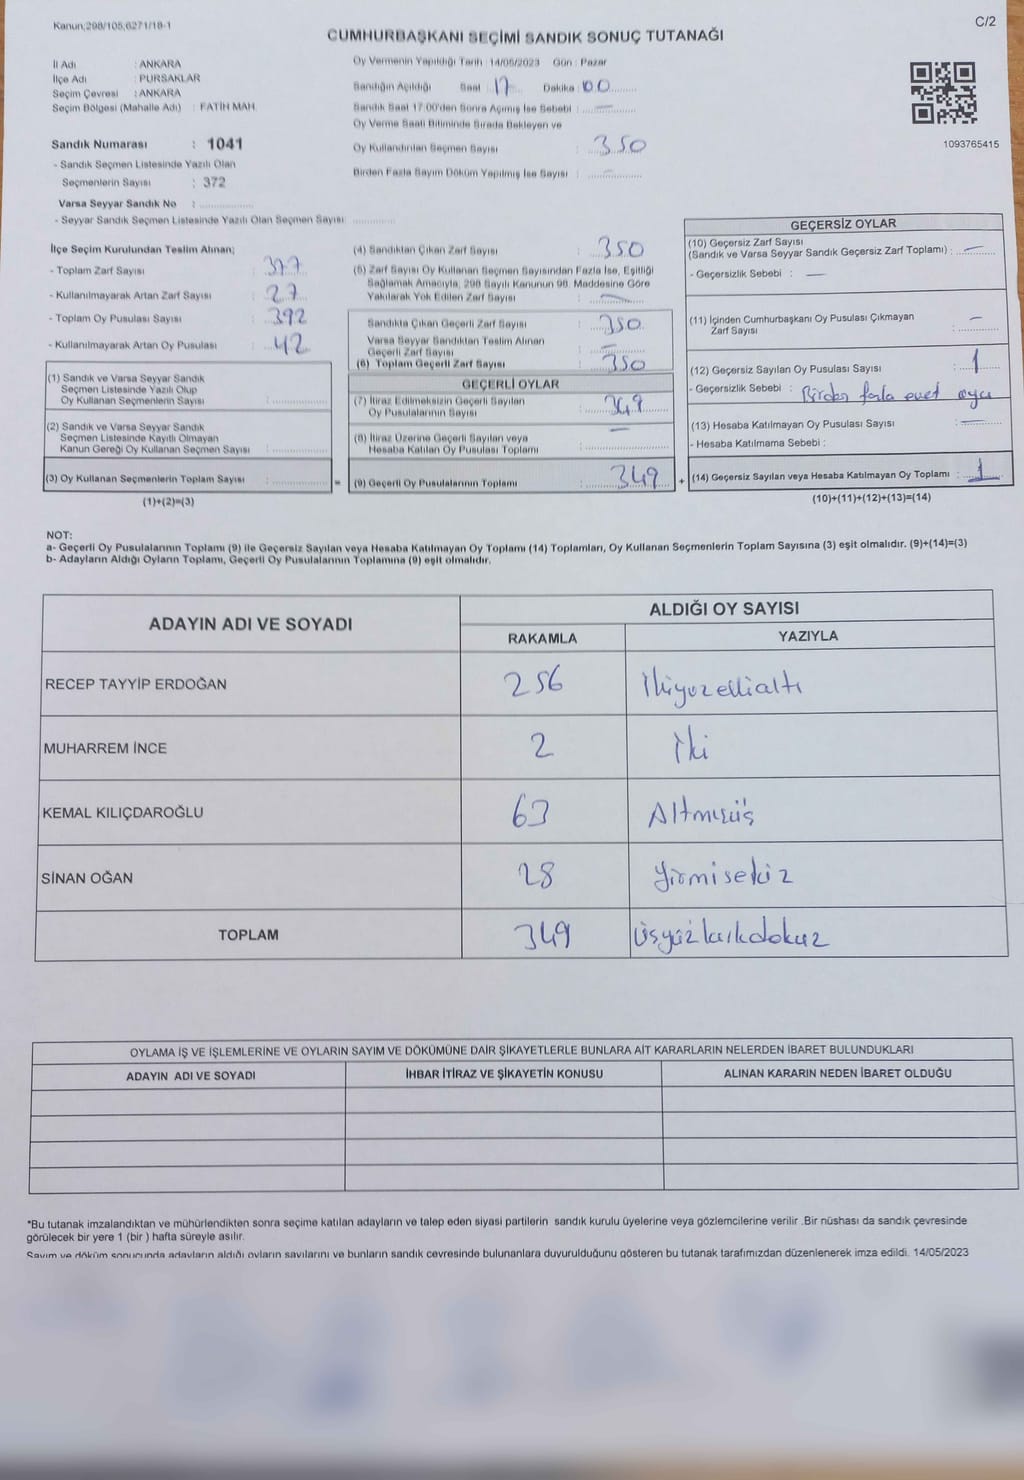 Kanun;298/105,6271/18-1
C/2
CUMHURBAŞKANI SEÇİMİ SANDIK SONUÇ TUTANAĞI
İl Adı : ANKARA
İlçe Adı : PURSAKLAR
Seçim Çevresi : ANKARA
Seçim Bölgesi (Mahalle Adı) : FATİH MAH
Sandık Numarası : 1041
- Sandık Seçmen Listesinde Yazılı Olan
Seçmenlerin Sayısı : 372
Varsa Seyyar Sandık No :
- Seyyar Sandık Seçmen Listesinde Yazılı Olan Seçmen Sayısı:
Oy Vermenin Yapıldığı Tarih : 14/05/2023 Gün : Pazar
Sandığın Açıldığı Saat : 17 Dakika : 00
Sandık Saat 17:00'den Sonra Açmış İse Sebebi : —
Oy Verme Saati Bitiminde Sırada Bekleyen ve
Oy Kullandırılan Seçmen Sayısı : 350
Birden Fazla Sayım Döküm Yapılmış İse Sayısı : —
1093765415
İlçe Seçim Kurulundan Teslim Alınan;
- Toplam Zarf Sayısı : 377
- Kullanılmayarak Artan Zarf Sayısı : 27
- Toplam Oy Pusulası Sayısı : 392
- Kullanılmayarak Artan Oy Pusulası : 42
(1) Sandık ve Varsa Seyyar Sandık
Seçmen Listesinde Yazılı Olup
Oy Kullanan Seçmenlerin Sayısı :
(2) Sandık ve Varsa Seyyar Sandık
Seçmen Listesinde Kayıtlı Olmayan
Kanun Gereği Oy Kullanan Seçmen Sayısı :
(3) Oy Kullanan Seçmenlerin Toplam Sayısı : =
(1)+(2)=(3)
(4) Sandıktan Çıkan Zarf Sayısı : 350
(5) Zarf Sayısı Oy Kullanan Seçmen Sayısından Fazla İse, Eşitliği
Sağlamak Amacıyla, 298 Sayılı Kanunun 98. Maddesine Göre
Yakılarak Yok Edilen Zarf Sayısı : —
Sandıkta Çıkan Geçerli Zarf Sayısı : 350
Varsa Seyyar Sandıktan Teslim Alınan
Geçerli Zarf Sayısı : —
(6) Toplam Geçerli Zarf Sayısı : 350
GEÇERLİ OYLAR
(7) İtiraz Edilmeksizin Geçerli Sayılan
Oy Pusulalarının Sayısı : 349
(8) İtiraz Üzerine Geçerli Sayılan veya
Hesaba Katılan Oy Pusulası Toplamı : —
(9) Geçerli Oy Pusulalarının Toplamı : 349 +
GEÇERSİZ OYLAR
(10) Geçersiz Zarf Sayısı
(Sandık ve Varsa Seyyar Sandık Geçersiz Zarf Toplamı) : —
- Geçersizlik Sebebi : —
(11) İçinden Cumhurbaşkanı Oy Pusulası Çıkmayan
Zarf Sayısı : —
(12) Geçersiz Sayılan Oy Pusulası Sayısı : 1
- Geçersizlik Sebebi : Birden fazla evet oyu
(13) Hesaba Katılmayan Oy Pusulası Sayısı : —
- Hesaba Katılmama Sebebi :
(14) Geçersiz Sayılan veya Hesaba Katılmayan Oy Toplamı : 1
(10)+(11)+(12)+(13)=(14)
NOT:
a- Geçerli Oy Pusulalarının Toplamı (9) ile Geçersiz Sayılan veya Hesaba Katılmayan Oy Toplamı (14) Toplamları, Oy Kullanan Seçmenlerin Toplam Sayısına (3) eşit olmalıdır. (9)+(14)=(3)
b- Adayların Aldığı Oyların Toplamı, Geçerli Oy Pusulalarının Toplamına (9) eşit olmalıdır.
ADAYIN ADI VE SOYADI
ALDIĞI OY SAYISI
RAKAMLA YAZIYLA
RECEP TAYYİP ERDOĞAN 256 İkiyüzellialtı
MUHARREM İNCE 2 İki
KEMAL KILIÇDAROĞLU 63 Altmışüç
SİNAN OĞAN 28 yirmisekiz
TOPLAM 349 üçyüzkırkdokuz
OYLAMA İŞ VE İŞLEMLERİNE VE OYLARIN SAYIM VE DÖKÜMÜNE DAİR ŞİKAYETLERLE BUNLARA AİT KARARLARIN NELERDEN İBARET BULUNDUKLARI
ADAYIN ADI VE SOYADI İHBAR İTİRAZ VE ŞİKAYETİN KONUSU ALINAN KARARIN NEDEN İBARET OLDUĞU
*Bu tutanak imzalandıktan ve mühürlendikten sonra seçime katılan adayların ve talep eden siyasi partilerin sandık kurulu üyelerine veya gözlemcilerine verilir .Bir nüshası da sandık çevresinde
görülecek bir yere 1 (bir ) hafta süreyle asılır.
Sayım ve döküm sonucunda adayların aldığı oyların sayılarını ve bunların sandık çevresinde bulunanlara duyurulduğunu gösteren bu tutanak tarafımızdan düzenlenerek imza edildi. 14/05/2023